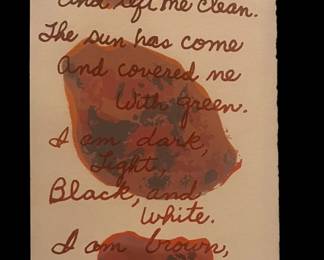 And left me clean.
The sun has come
And covered me
With green.
I am dark,
Light,
Black, and
White.
I am brown,